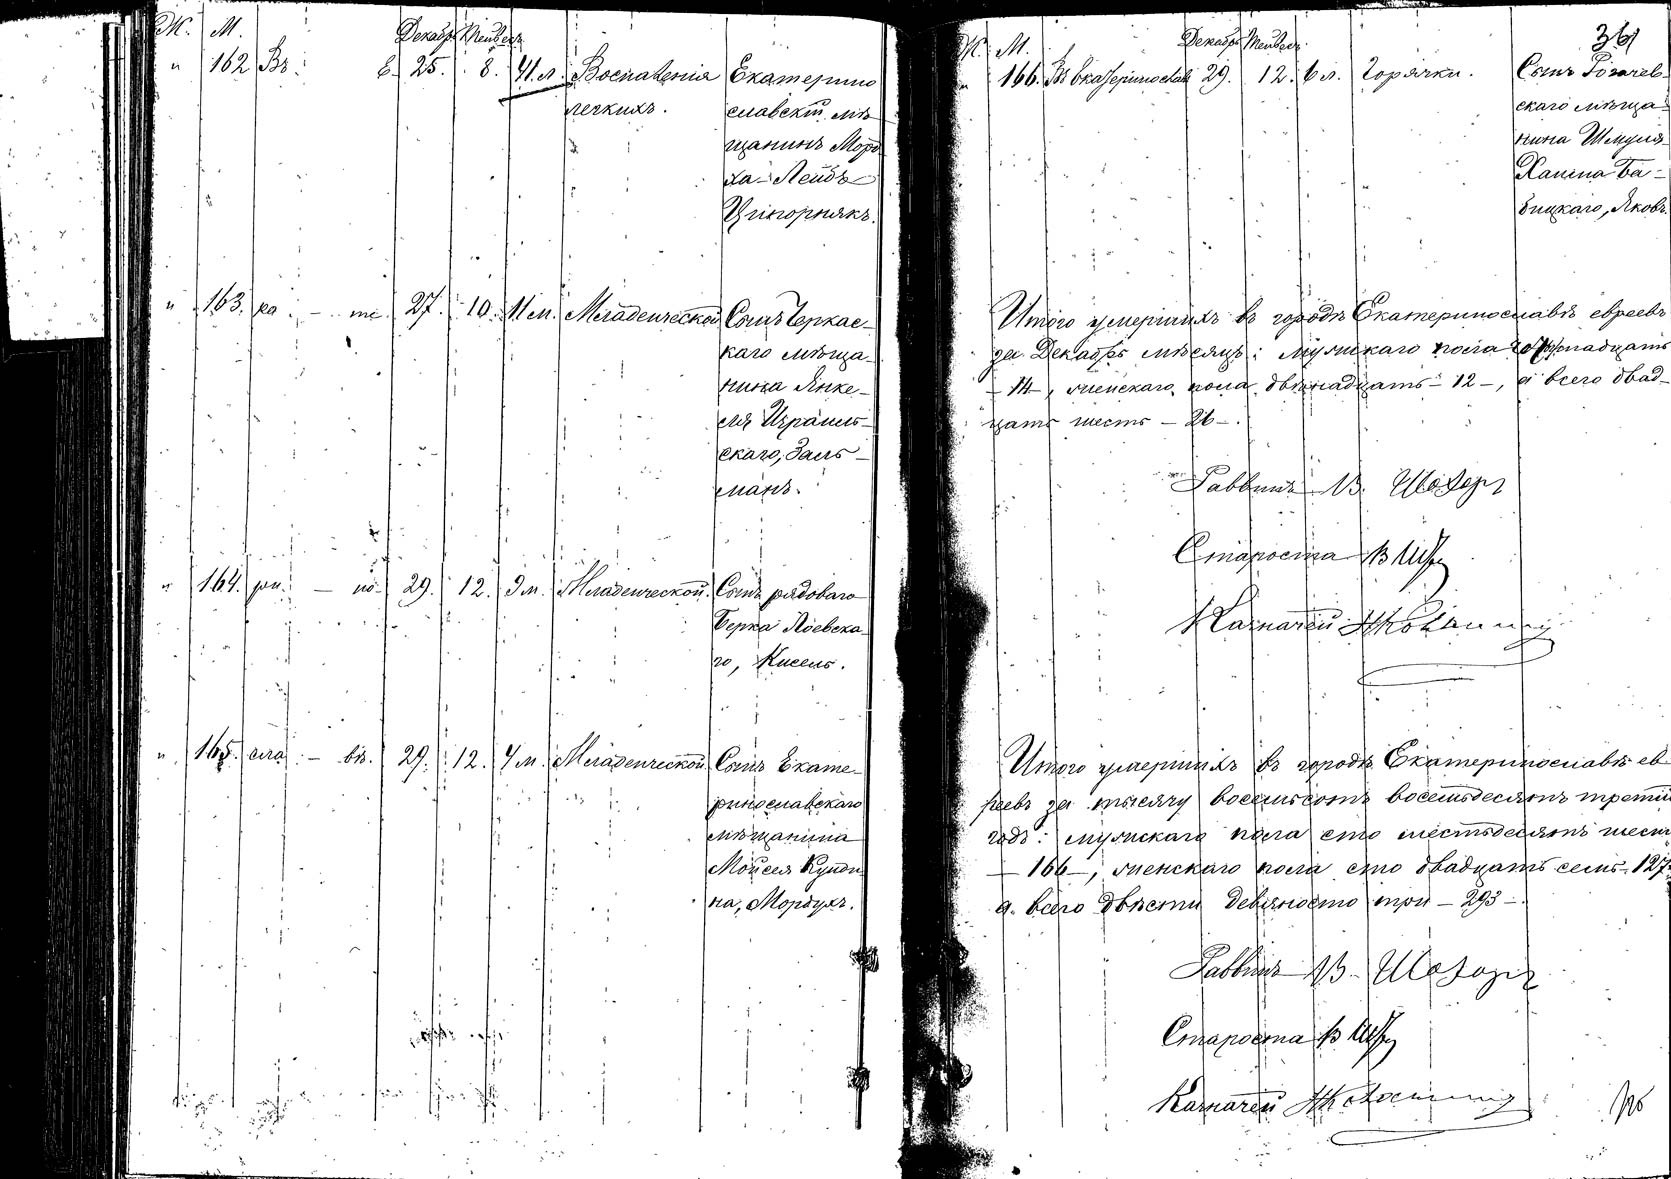 Ж. М. Декабр. Тейвес.
" 162 Въ Е 25. 8. 41 л. Воспаленія Екатерино
легкихъ. славскій мѣ
щанинъ Морд
ха-Лейбъ
Цыгорнякъ.
" 163. ка - те 27. 10. 11 м. Младенческой Сынъ Черкас-
каго мѣща-
нина Янке-
ля Израиль-
скаго, Заль-
манъ.
" 164. ри. - но 29. 12. 9 м. Младенческой. Сынъ рядоваго
Берка Лоевска-
го, Кисель.
" 165. сла - вѣ. 29. 12. 4 м. Младенческой Сынъ Екате-
ринославскаго
мѣщанина
Мойсея Купои
на, Мордухъ.
361
Ж. М. Декабр. Тейвес.
" 166. Въ Екатеринославѣ 29. 12. 6 л. Горячки. Сынъ Рогачев-
скаго мѣща-
нина Шмуля-
Хаима Ба-
бицкаго, Яковъ.
Итого умершихъ въ городѣ Екатеринославѣ евреевъ
за Декабрь мѣсяцъ: мужскаго пола четырнадцать
- 14 -, женскаго пола двѣнадцать - 12 -, а всего двад-
цать шесть - 26 -.
Раввинъ В. Шахоръ
Староста
Казначей
Итого умершихъ въ городѣ Екатеринославѣ ев
реевъ за тысячу восемьсотъ восемьдесятъ третій
годъ: мужскаго пола сто шестьдесятъ шесть
- 166 -, женскаго пола сто двадцать семь - 127 -
а всего двѣсти девяносто три - 293 -.
Раввинъ В. Шахоръ
Староста
Казначей